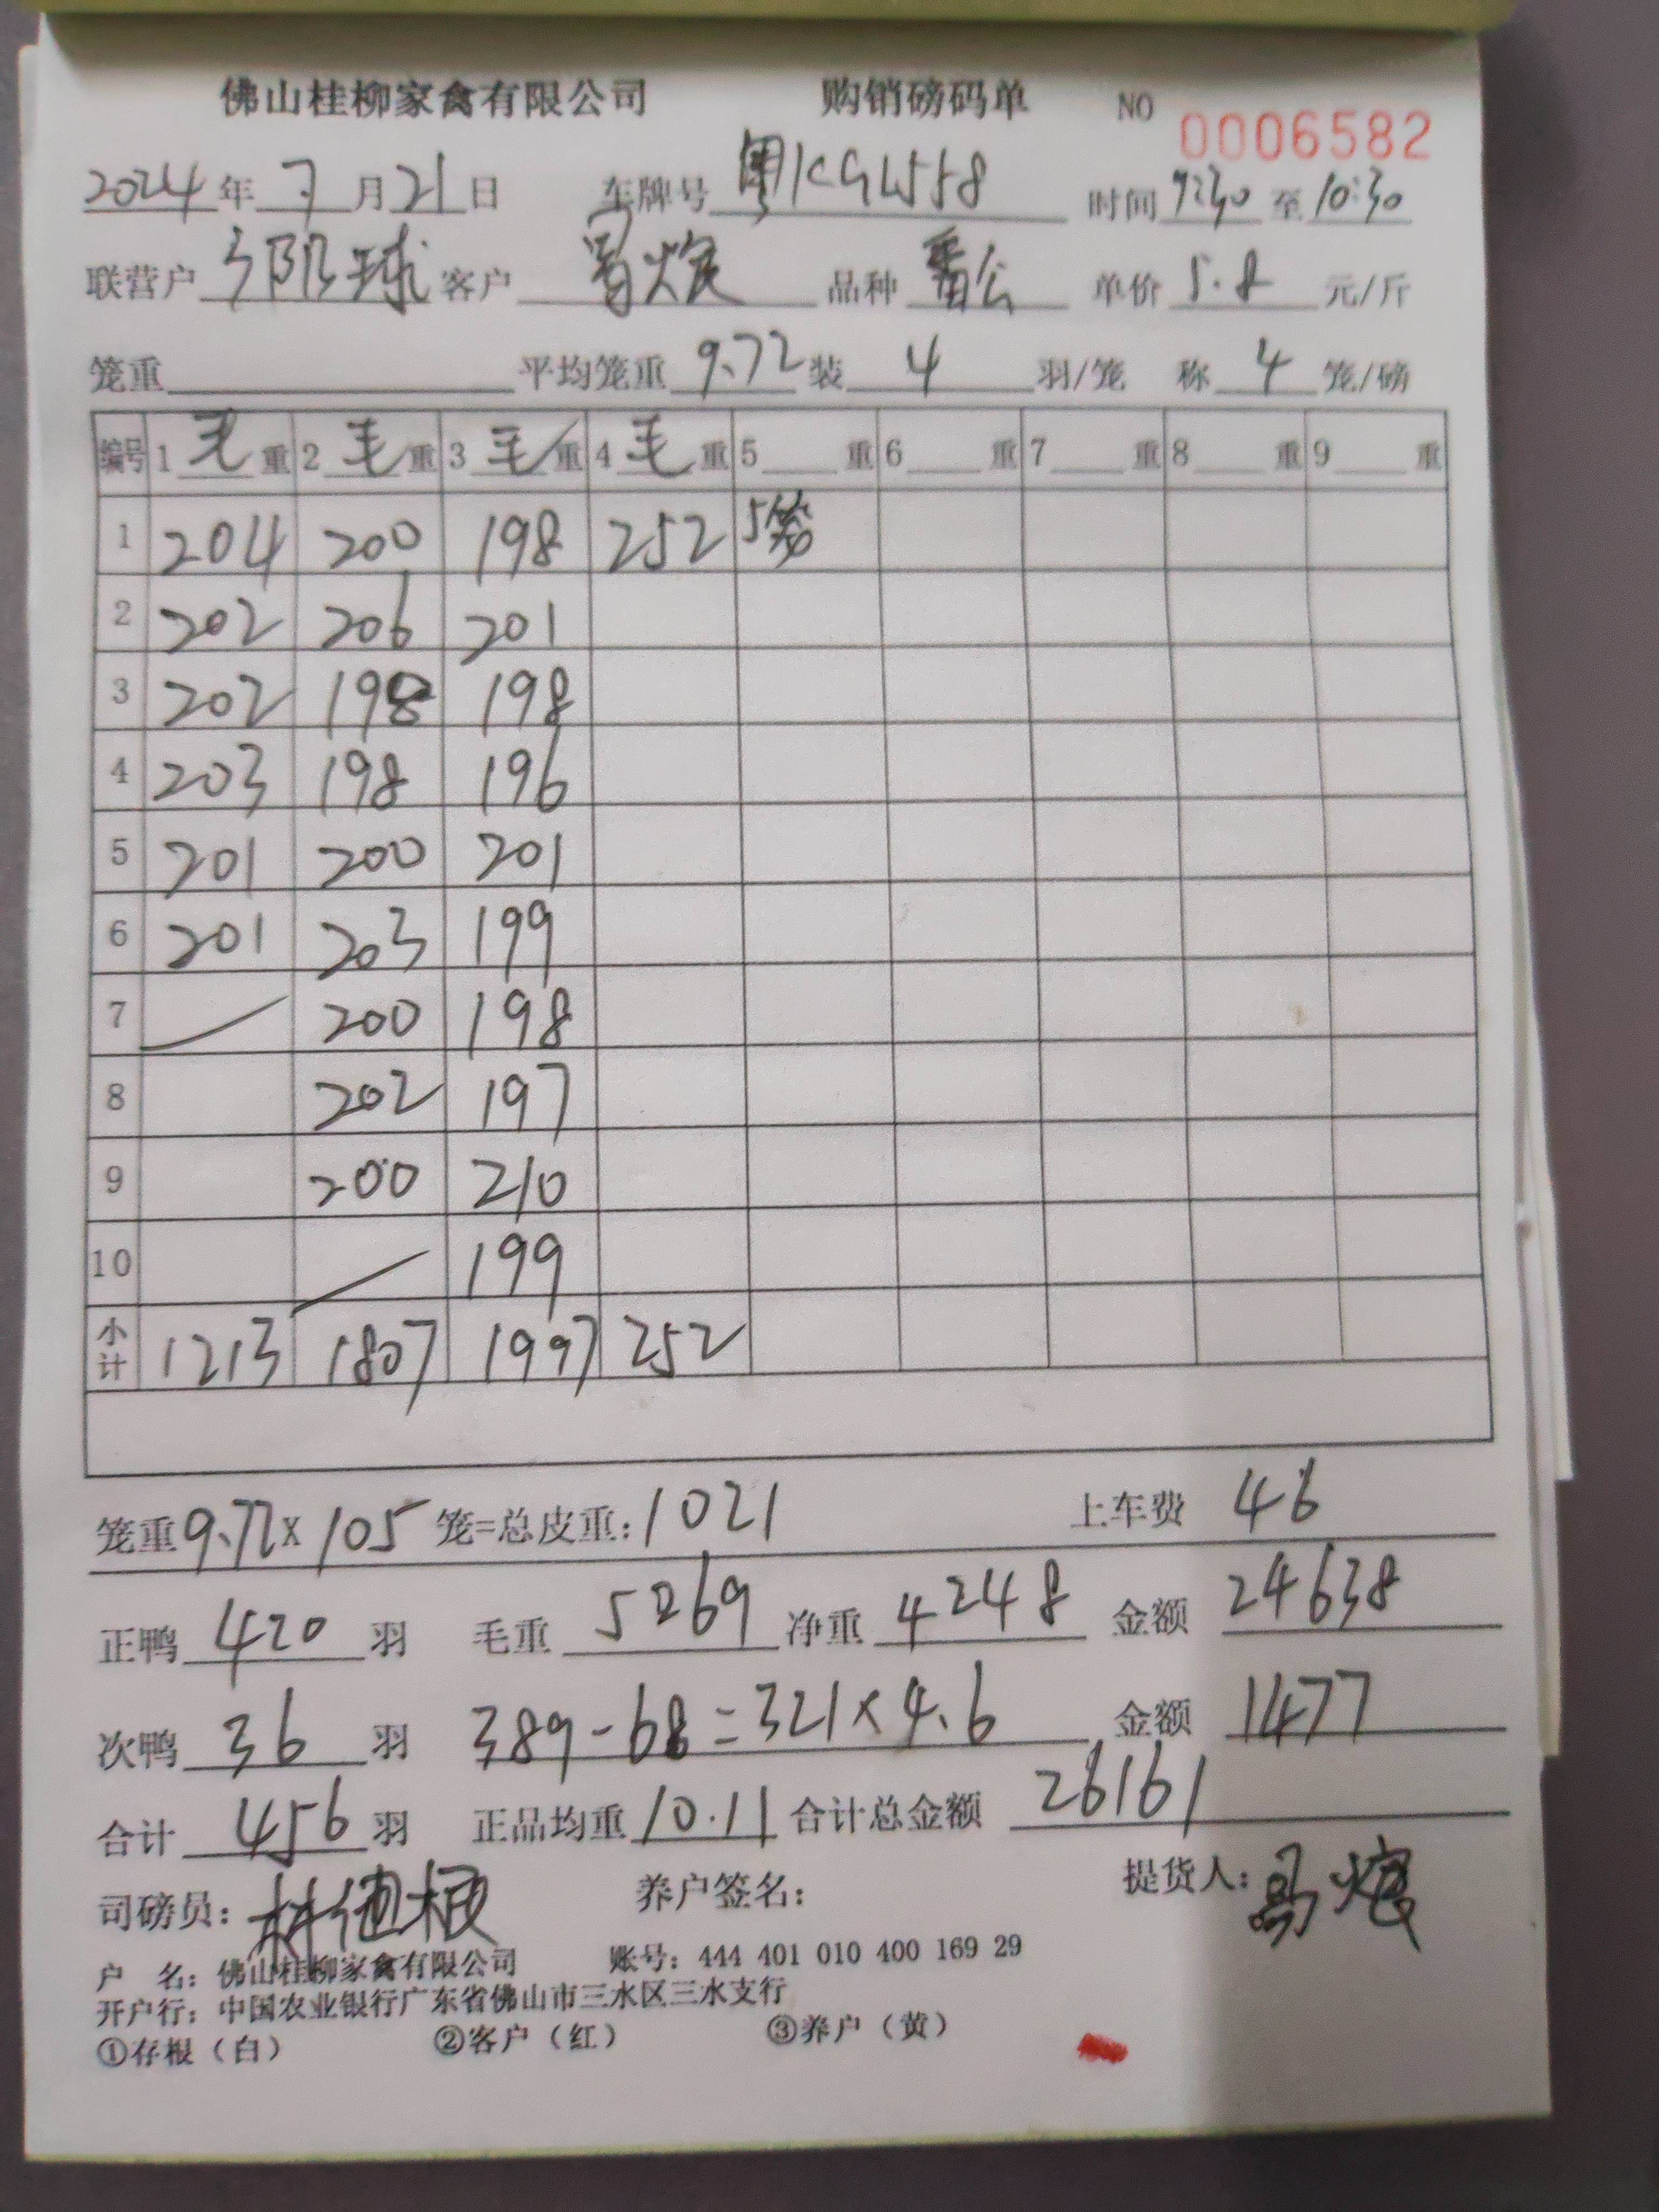 佛山桂柳家禽有限公司 购销磅码单 NO 0006582
2024年7月21日 车牌号 粤KGW558 时间 9:30 至 10:30
联营户 球 客户 品种 番公 单价 5.8 元/斤
笼重 平均笼重 9.72 装 4 羽/笼 称 4 笼/磅
编号 1 毛 重 2 毛 重 3 毛 重 4 毛 重 5 重 6 重 7 重 8 重 9 重
1 204 200 198 252 5笼
2 202 206 201
3 202 198 198
4 203 198 196
5 201 200 201
6 201 203 199
7 200 198
8 202 197
9 200 210
10 199
小计 1213 1807 1997 252
笼重 9.72 X 105 笼=总皮重: 1021 上车费 46
正鸭 420 羽 毛重 5269 净重 4248 金额 24638
次鸭 36 羽 389-68=321×4.6 金额 1477
合计 456 羽 正品均重 10.11 合计总金额 26161
司磅员: 养户签名: 提货人:
户 名: 佛山桂柳家禽有限公司 账号: 444 401 010 400 169 29
开户行: 中国农业银行广东省佛山市三水区三水支行
①存根(白) ②客户(红) ③养户(黄)